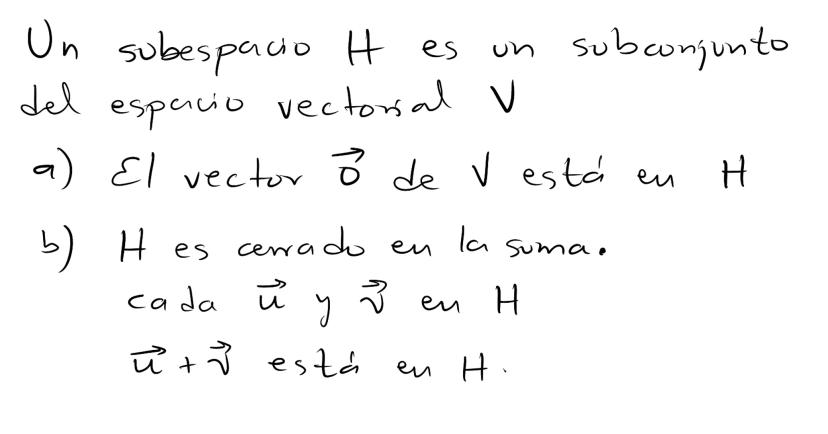 Un subespacio H es un subconjunto
del espacio vectorial V
a) El vector \vec{0} de V está en H
b) H es cerrado en la suma.
cada \vec{u} y \vec{v} en H
\vec{u} + \vec{v} está en H.